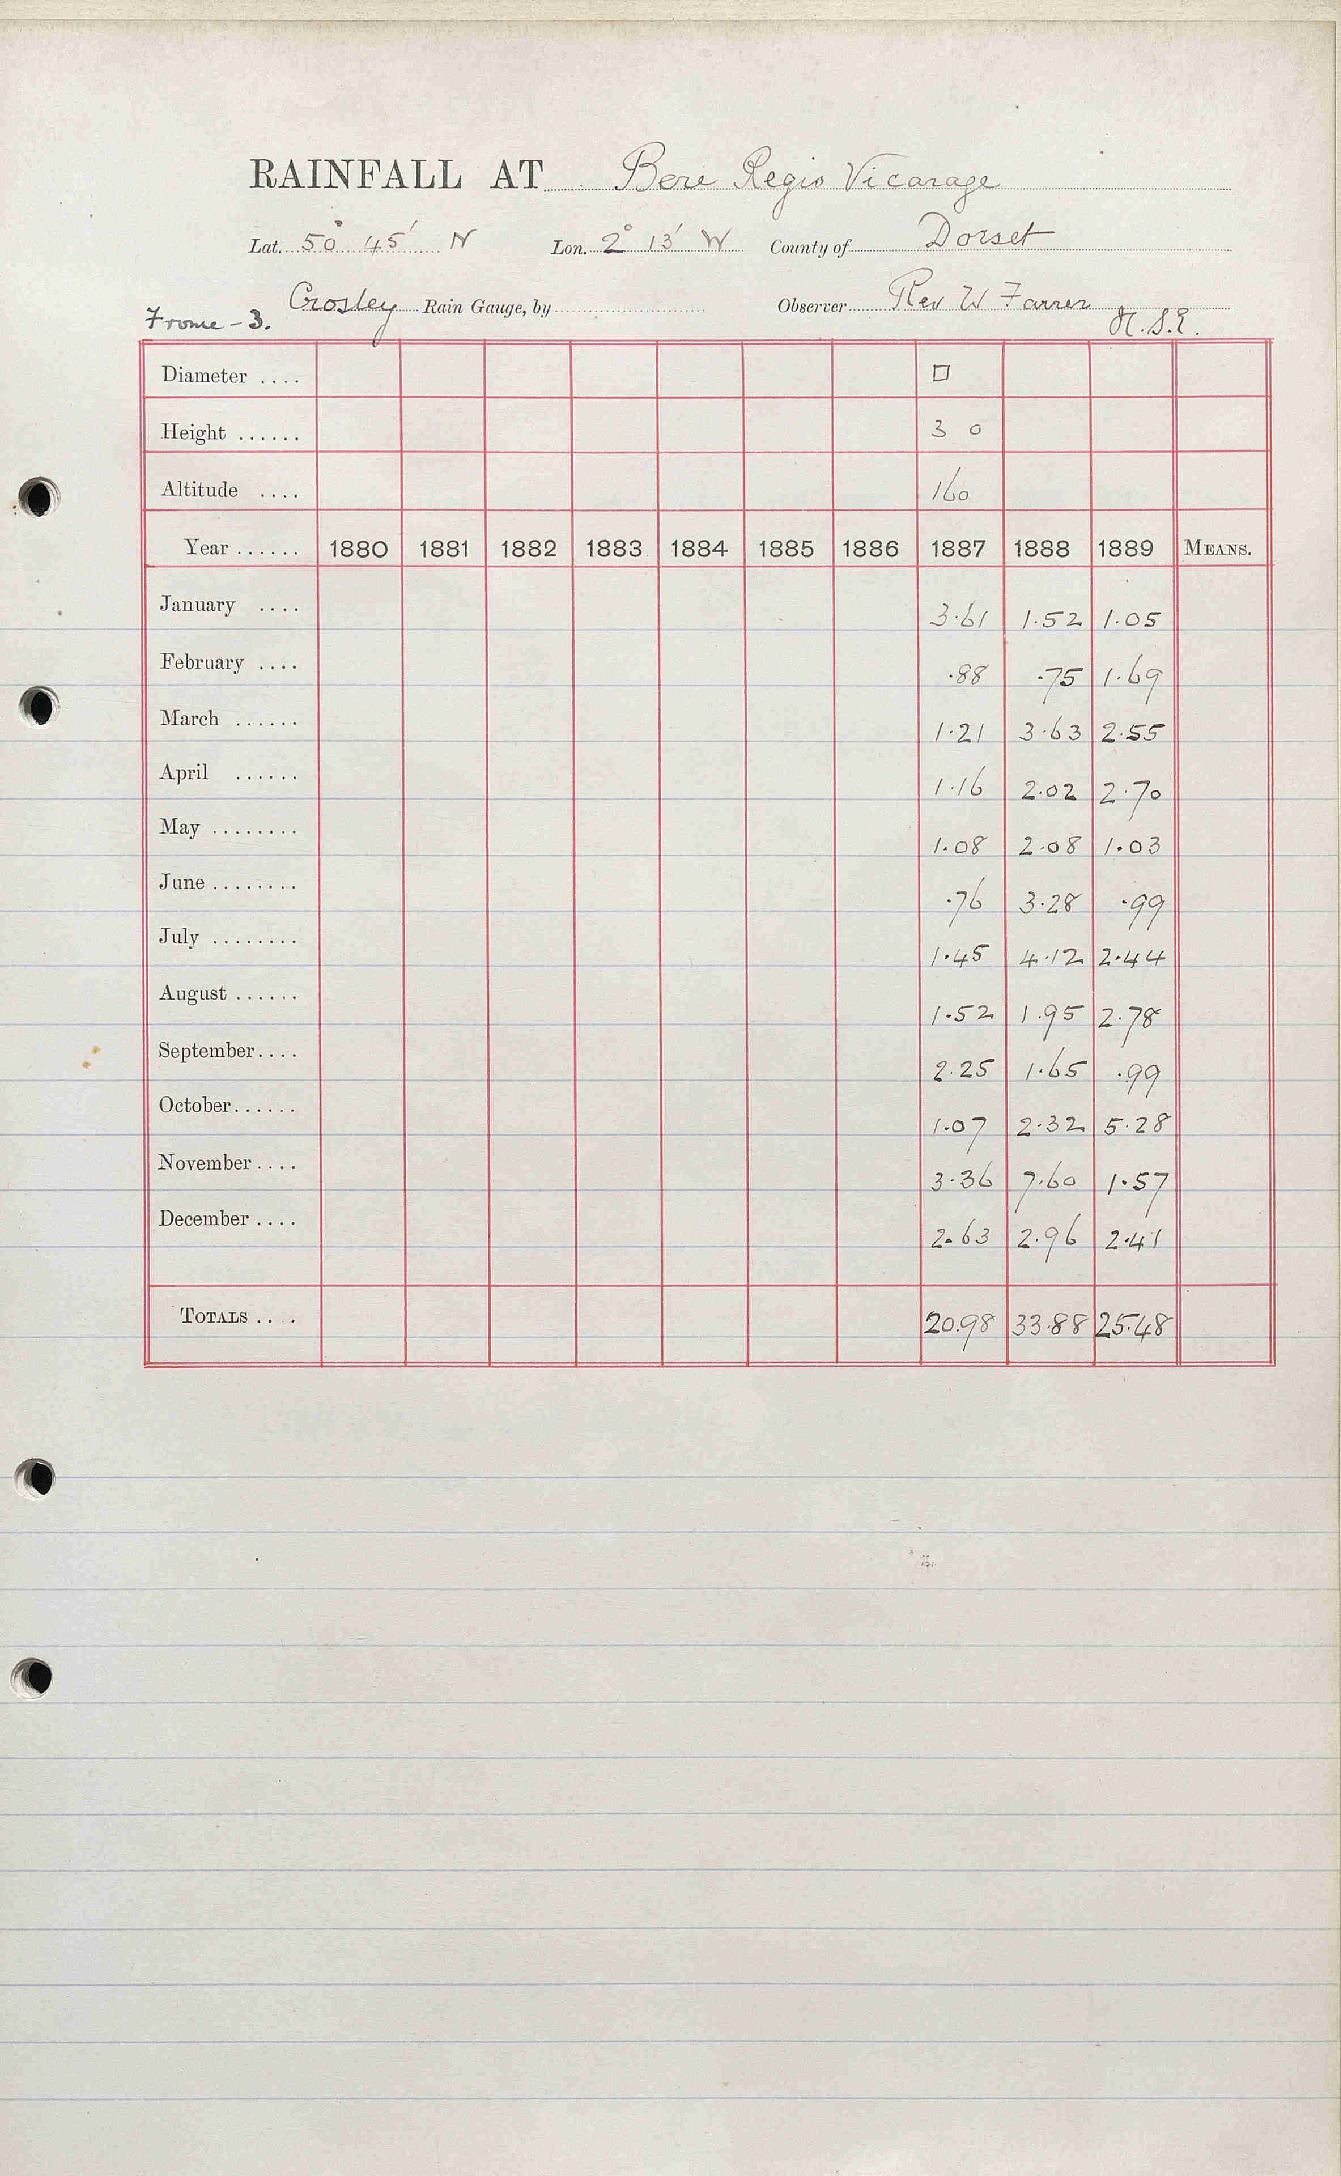 RAINFALL AT Bere Regis Vicarage
Lat. 50° 45' N Lon. 2° 13' W County of Dorset
Crosley Rain Gauge, by Observer Rev W Farrer
Frome - 3. H.S.E.
Diameter .... □
Height ...... 3 0
Altitude .... 160
Year ...... 1880 1881 1882 1883 1884 1885 1886 1887 1888 1889 MEANS.
January .... 3.61 1.52 1.05
February .... .88 .75 1.69
March ...... 1.21 3.63 2.55
April ...... 1.16 2.02 2.70
May ........ 1.08 2.08 1.03
June ........ .76 3.28 .99
July ........ 1.45 4.12 2.44
August ...... 1.52 1.95 2.78
September.... 2.25 1.65 .99
October...... 1.07 2.32 5.28
November.... 3.36 7.60 1.57
December .... 2.63 2.96 2.41
TOTALS .... 20.98 33.88 25.48